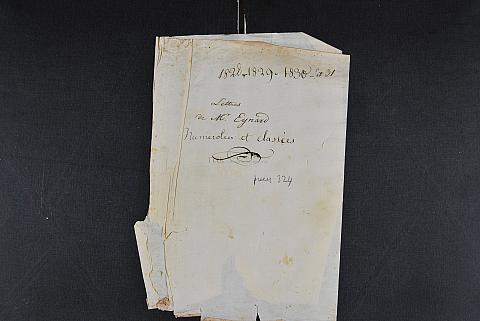 1828, 1829, 1830 et 31
Lettres
de Mr. Eynard
Numerotées et classées
pièces 324